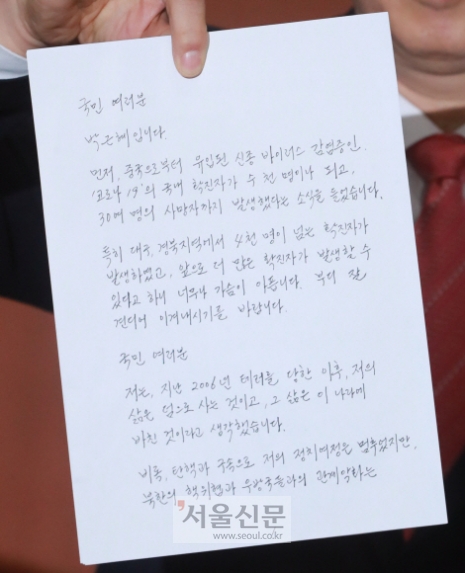 국민 여러분
박근혜입니다.
먼저, 중국으로부터 유입된 신종 바이러스 감염증인,
'코로나 19'의 국내 확진자가 수 천 명이나 되고,
30여 명의 사망자까지 발생했다는 소식을 들었습니다.
특히 대구, 경북지역에서 4천 명이 넘는 확진자가
발생하였고, 앞으로 더 많은 확진자가 발생할 수
있다고 하니 너무나 가슴이 아픕니다. 부디 잘
견디어 이겨내시기를 바랍니다.
국민 여러분
저는, 지난 2006년 테러를 당한 이후, 저의
삶은 덤으로 사는 것이고, 그 삶은 이 나라에
바친 것이라고 생각했습니다.
비록, 탄핵과 구속으로 저의 정치여정은 멈추었지만,
북한의 핵위협과 우방국들과의 관계악화는
서울신문
www.seoul.co.kr